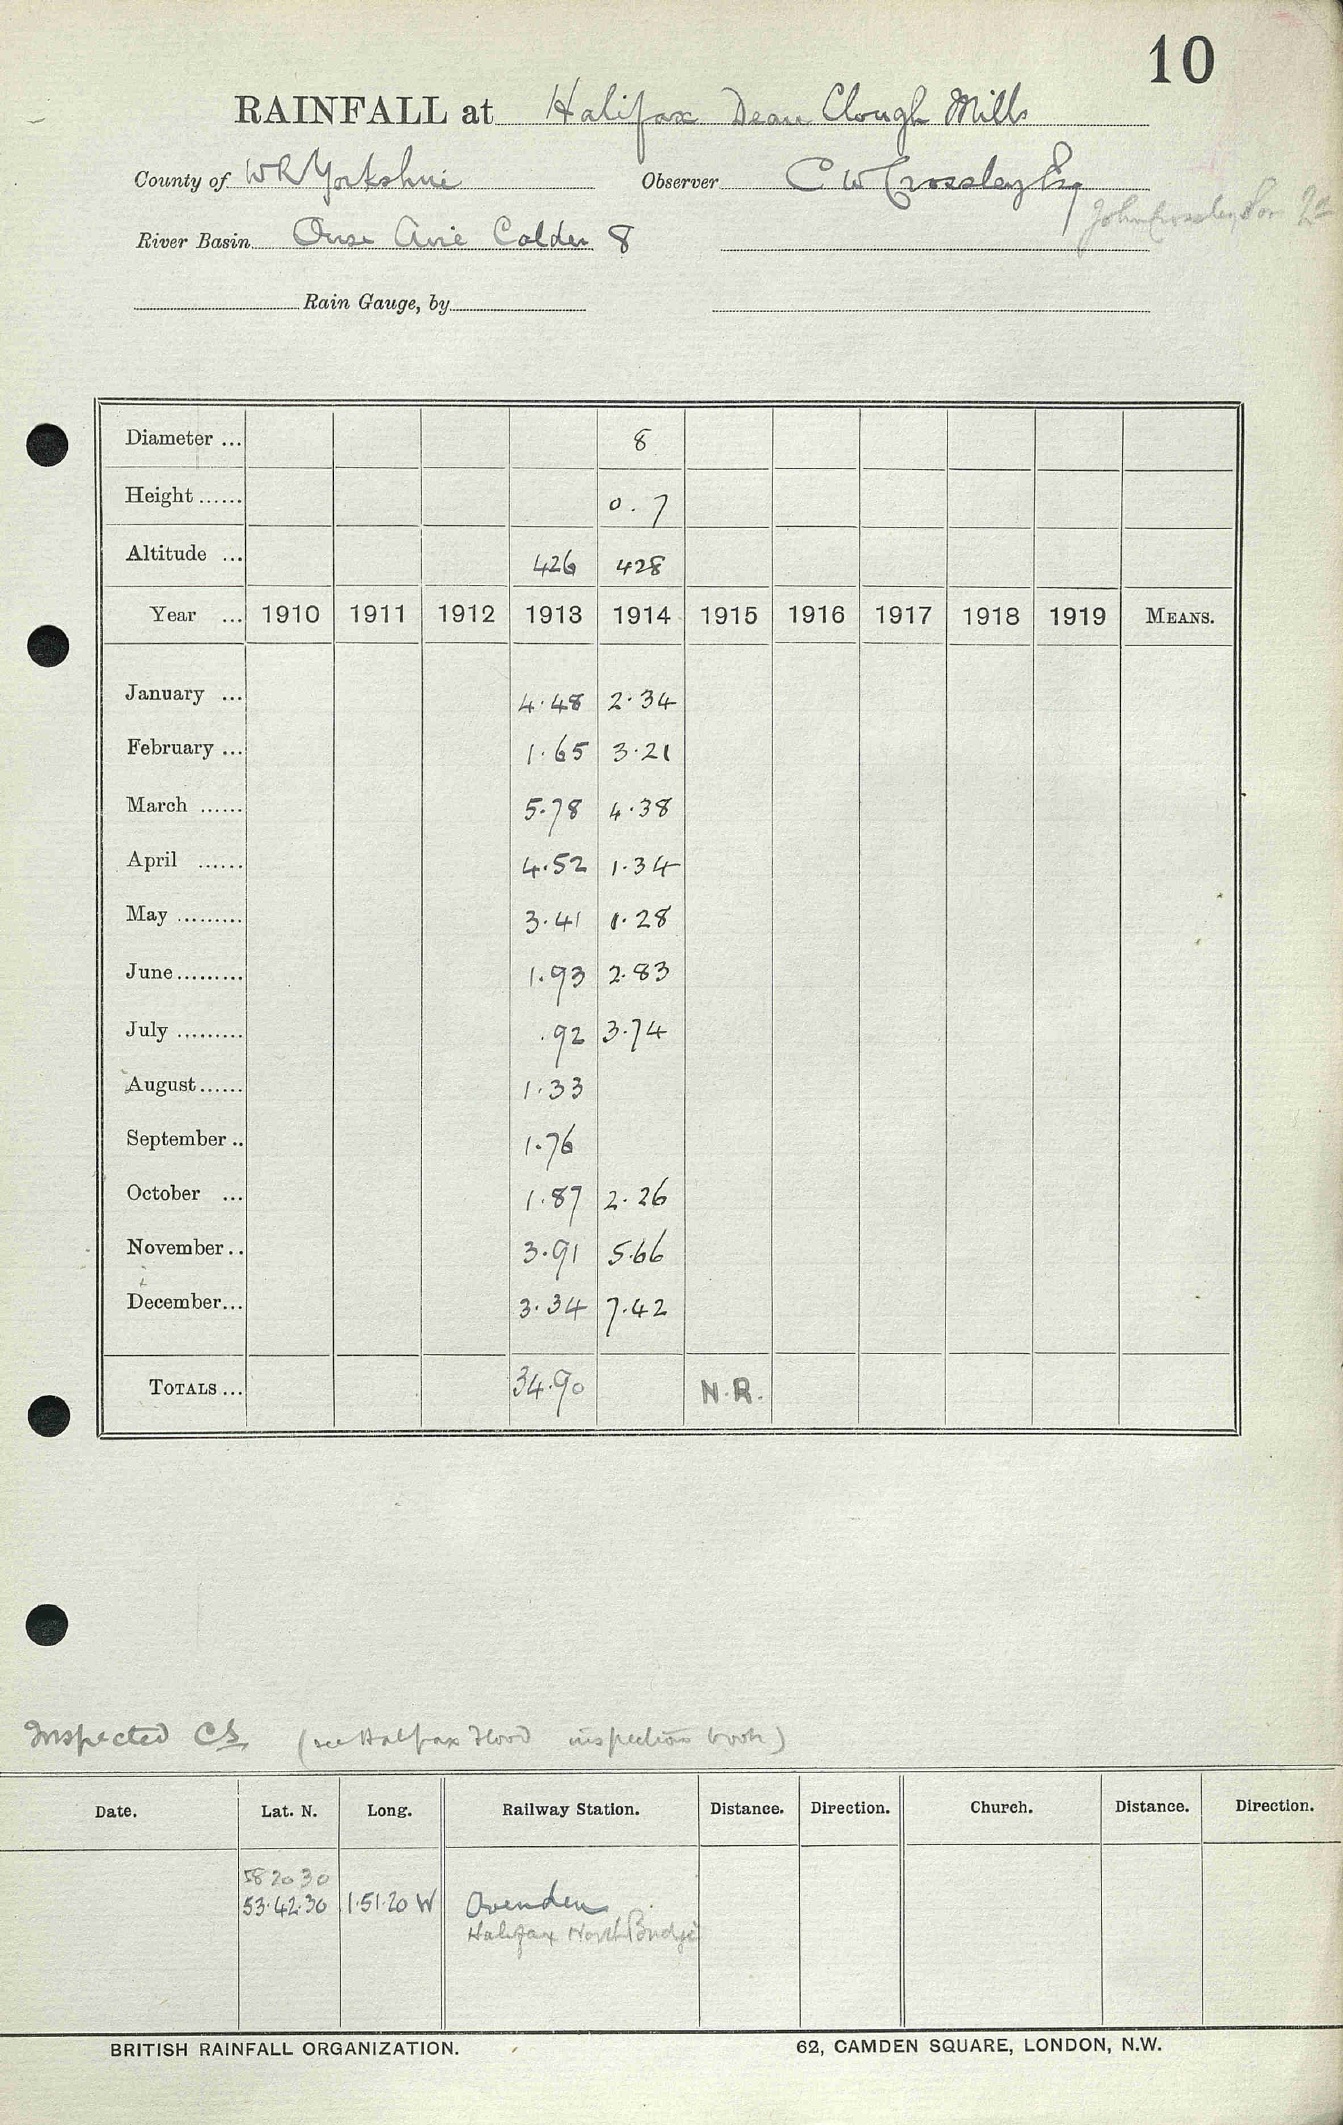 10
RAINFALL at Halifax Dean Clough Mills
County of W R Yorkshire Observer C W Crossley Esq
John Crossley & Son
River Basin Ouse Aire Calder 8
Rain Gauge, by
Diameter ... 8
Height ...... 0.7
Altitude ... 426 428
Year ... 1910 1911 1912 1913 1914 1915 1916 1917 1918 1919 MEANS.
January ... 4.48 2.34
February ... 1.65 3.21
March ...... 5.78 4.38
April ...... 4.52 1.34
May ......... 3.41 1.28
June ......... 1.93 2.83
July ......... .92 3.74
August ...... 1.33
September .. 1.76
October ... 1.87 2.26
November .. 3.91 5.66
December ... 3.34 7.42
TOTALS ... 34.90 N.R.
Inspected CS (see Halifax Flood inspection book)
Date. Lat. N. Long. Railway Station. Distance. Direction. Church. Distance. Direction.
58 20 30
53.42.30 1.51.20 W Ovenden
Halifax North Bridge
BRITISH RAINFALL ORGANIZATION. 62, CAMDEN SQUARE, LONDON, N.W.